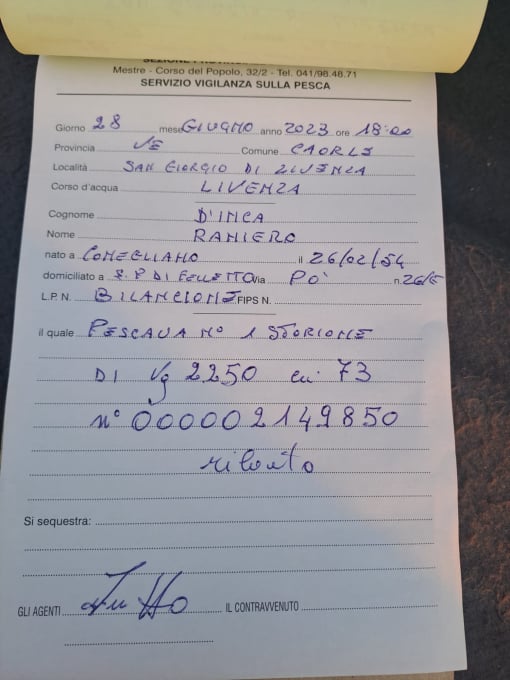 Mestre - Corso del Popolo, 32/2 - Tel. 041/98.48.71
SERVIZIO VIGILANZA SULLA PESCA
Giorno 28 mese GIUGNO anno 2023 ore 18:00
Provincia VE Comune CAORLE
Località SAN GIORGIO DI LIVENZA
Corso d'acqua LIVENZA
Cognome D'INCA
Nome RANIERO
nato a CONEGLIANO il 26/02/54
domiciliato a S.P DI FELETTO Via PO' n. 26/E
L.P. N. BILANCIONE FIPS N.
il quale PESCAVA N° 1 STORIONE
DI Kg 2250 cm 73
n° 000002149850
Si sequestra:
GLI AGENTI IL CONTRAVVENUTO